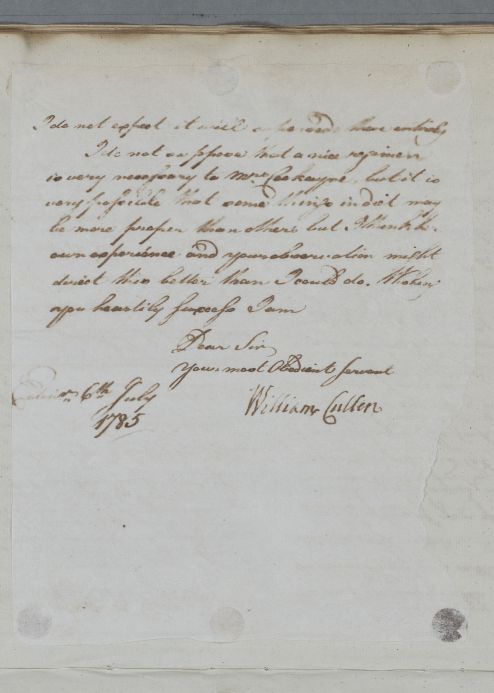 I do not expect it will supersede them entirely
I do not suppose that a nice regimen
is very necessary to Mrs Cockayne, but it is
very possible that some things in diet may
be more proper than others but I think her
own experience and your observation might
direct this better than I could do. Wishing
you heartily Success I am
Dear Sir
Your most Obedient Servant
Edinr. 6th July
William Cullen
1785